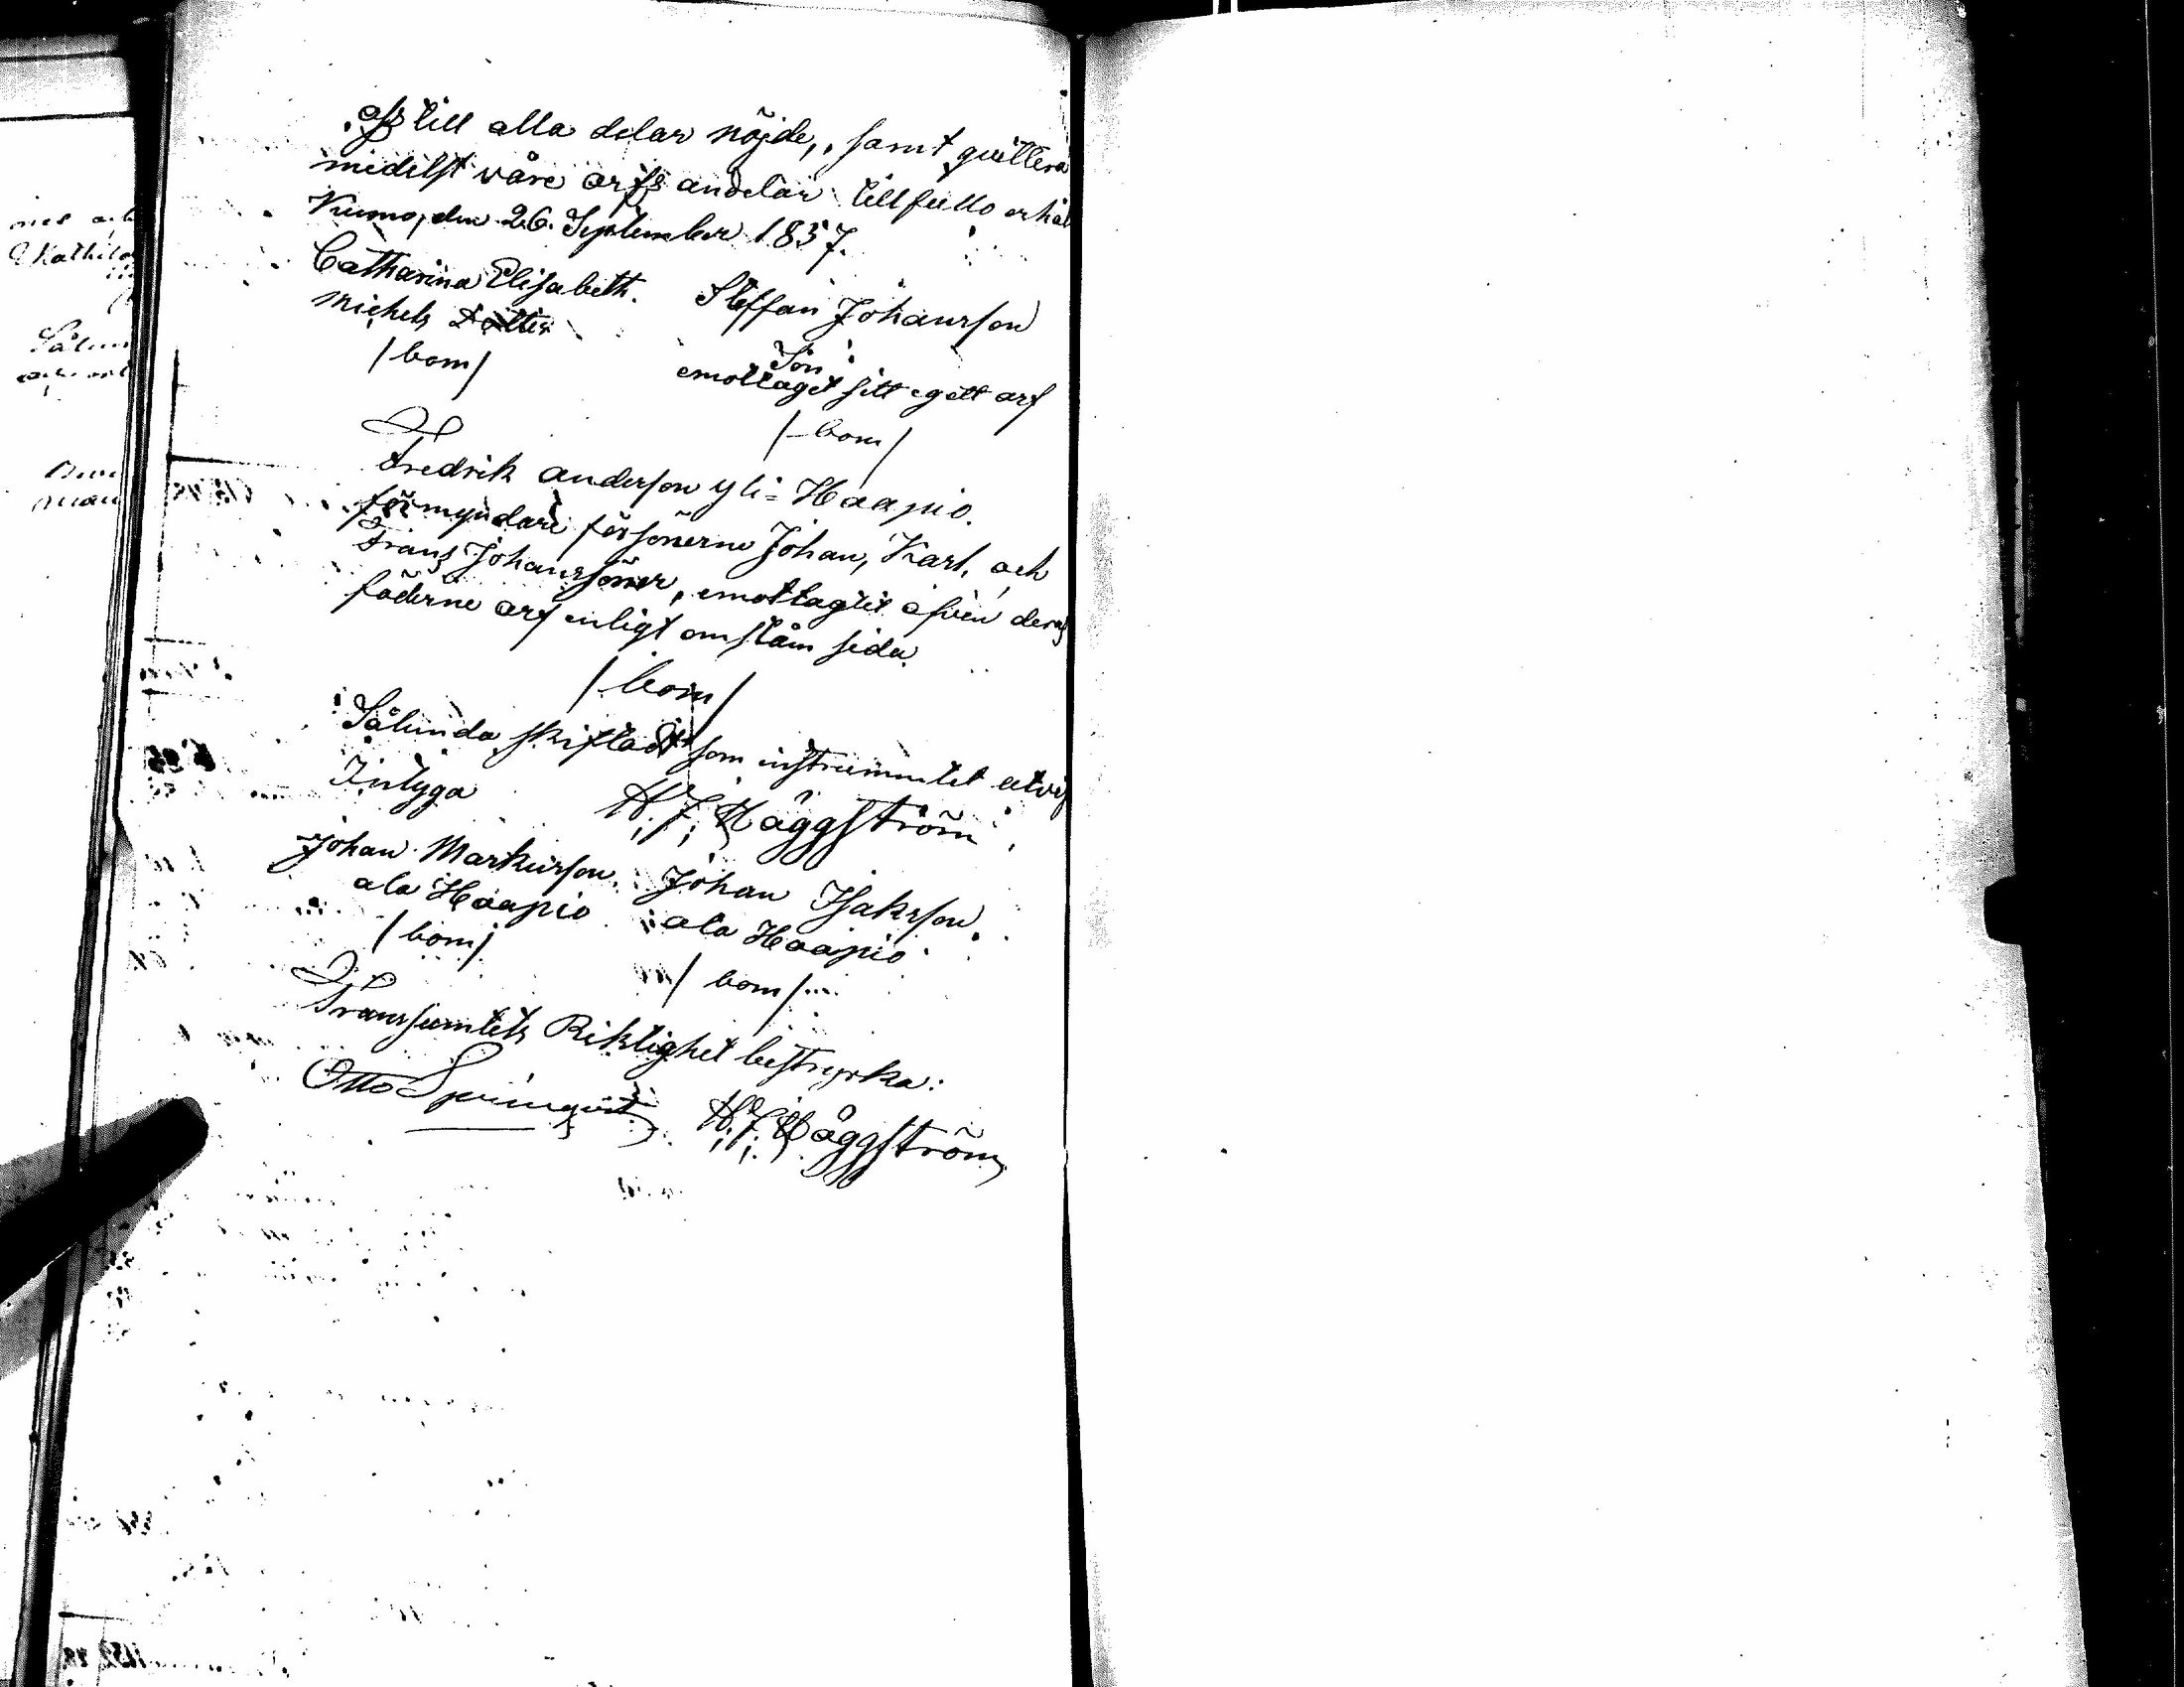 oss till alla delar nöjde, samt quittera
medelst våre arfs andelar till fullo erhål
Kumo, den 26. September 1857.
Catharina Elisabeth. Steffan Johansson
Michels Dotter Son
/bom/ emottaget sitt eget arf
/bom/
Fredrik Anderson Yli=Haapio.
förmyndare för sönerne Johan, Karl, och
Frans Johanssöner, emottagit äfven deras
fäderne arf enligt omstäm sida.
/bom/
Sålunda skiftadt som instrumentet utvis
Intyga H: J: Häggström
Johan Markusson. Johan Isaksson.
ala Haapio ala Haapio
/bom/ /bom/
Transsumtets Riktighet bestyrka:
Otto H: J: Häggström